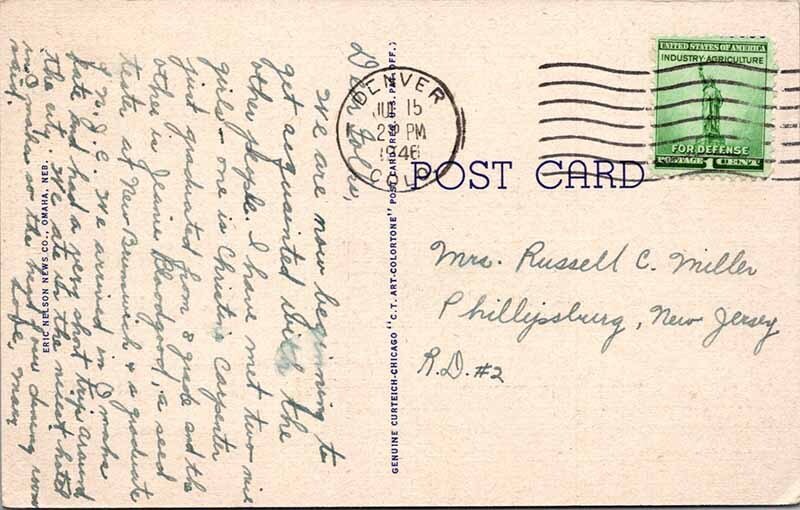 Dear Folks,
We are now beginning to
get acquainted with the
other people. I have met two nice
girls - one is Christine Carpenter
just graduated from 8 grade and the
other is Jeanie Bloodgood, a seed
tester at New Brunswick & a graduate
of N.J.C. We arrived in Omaha
late and had a very short trip around
the city. We ate in the nicest hotel
in Omaha so the
said.
Love, Mary
ERIC NELSON NEWS CO., OMAHA, NEB.
GENUINE CURTEICH-CHICAGO "C.T. ART-COLORTONE" POST CARD (REG. U.S. PAT. OFF.)
DENVER
15
2 30 PM
1946
COLO
POST CARD
UNITED STATES OF AMERICA
INDUSTRY-AGRICULTURE
FOR DEFENSE
POSTAGE 1 CENT
Mrs. Russell C. Miller
Phillipsburg, New Jersey
R.D. #2